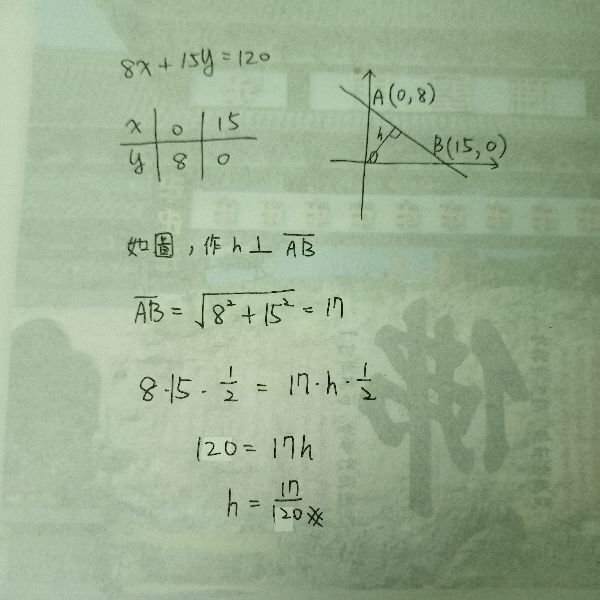 8x + 15y = 120
x 0 15
y 8 0
A(0,8)
h
B(15,0)
O
如圖,作h⊥AB̅
AB̅ = √(8² + 15²) = 17
8·15·1/2 = 17·h·1/2
120 = 17h
h = 17/120